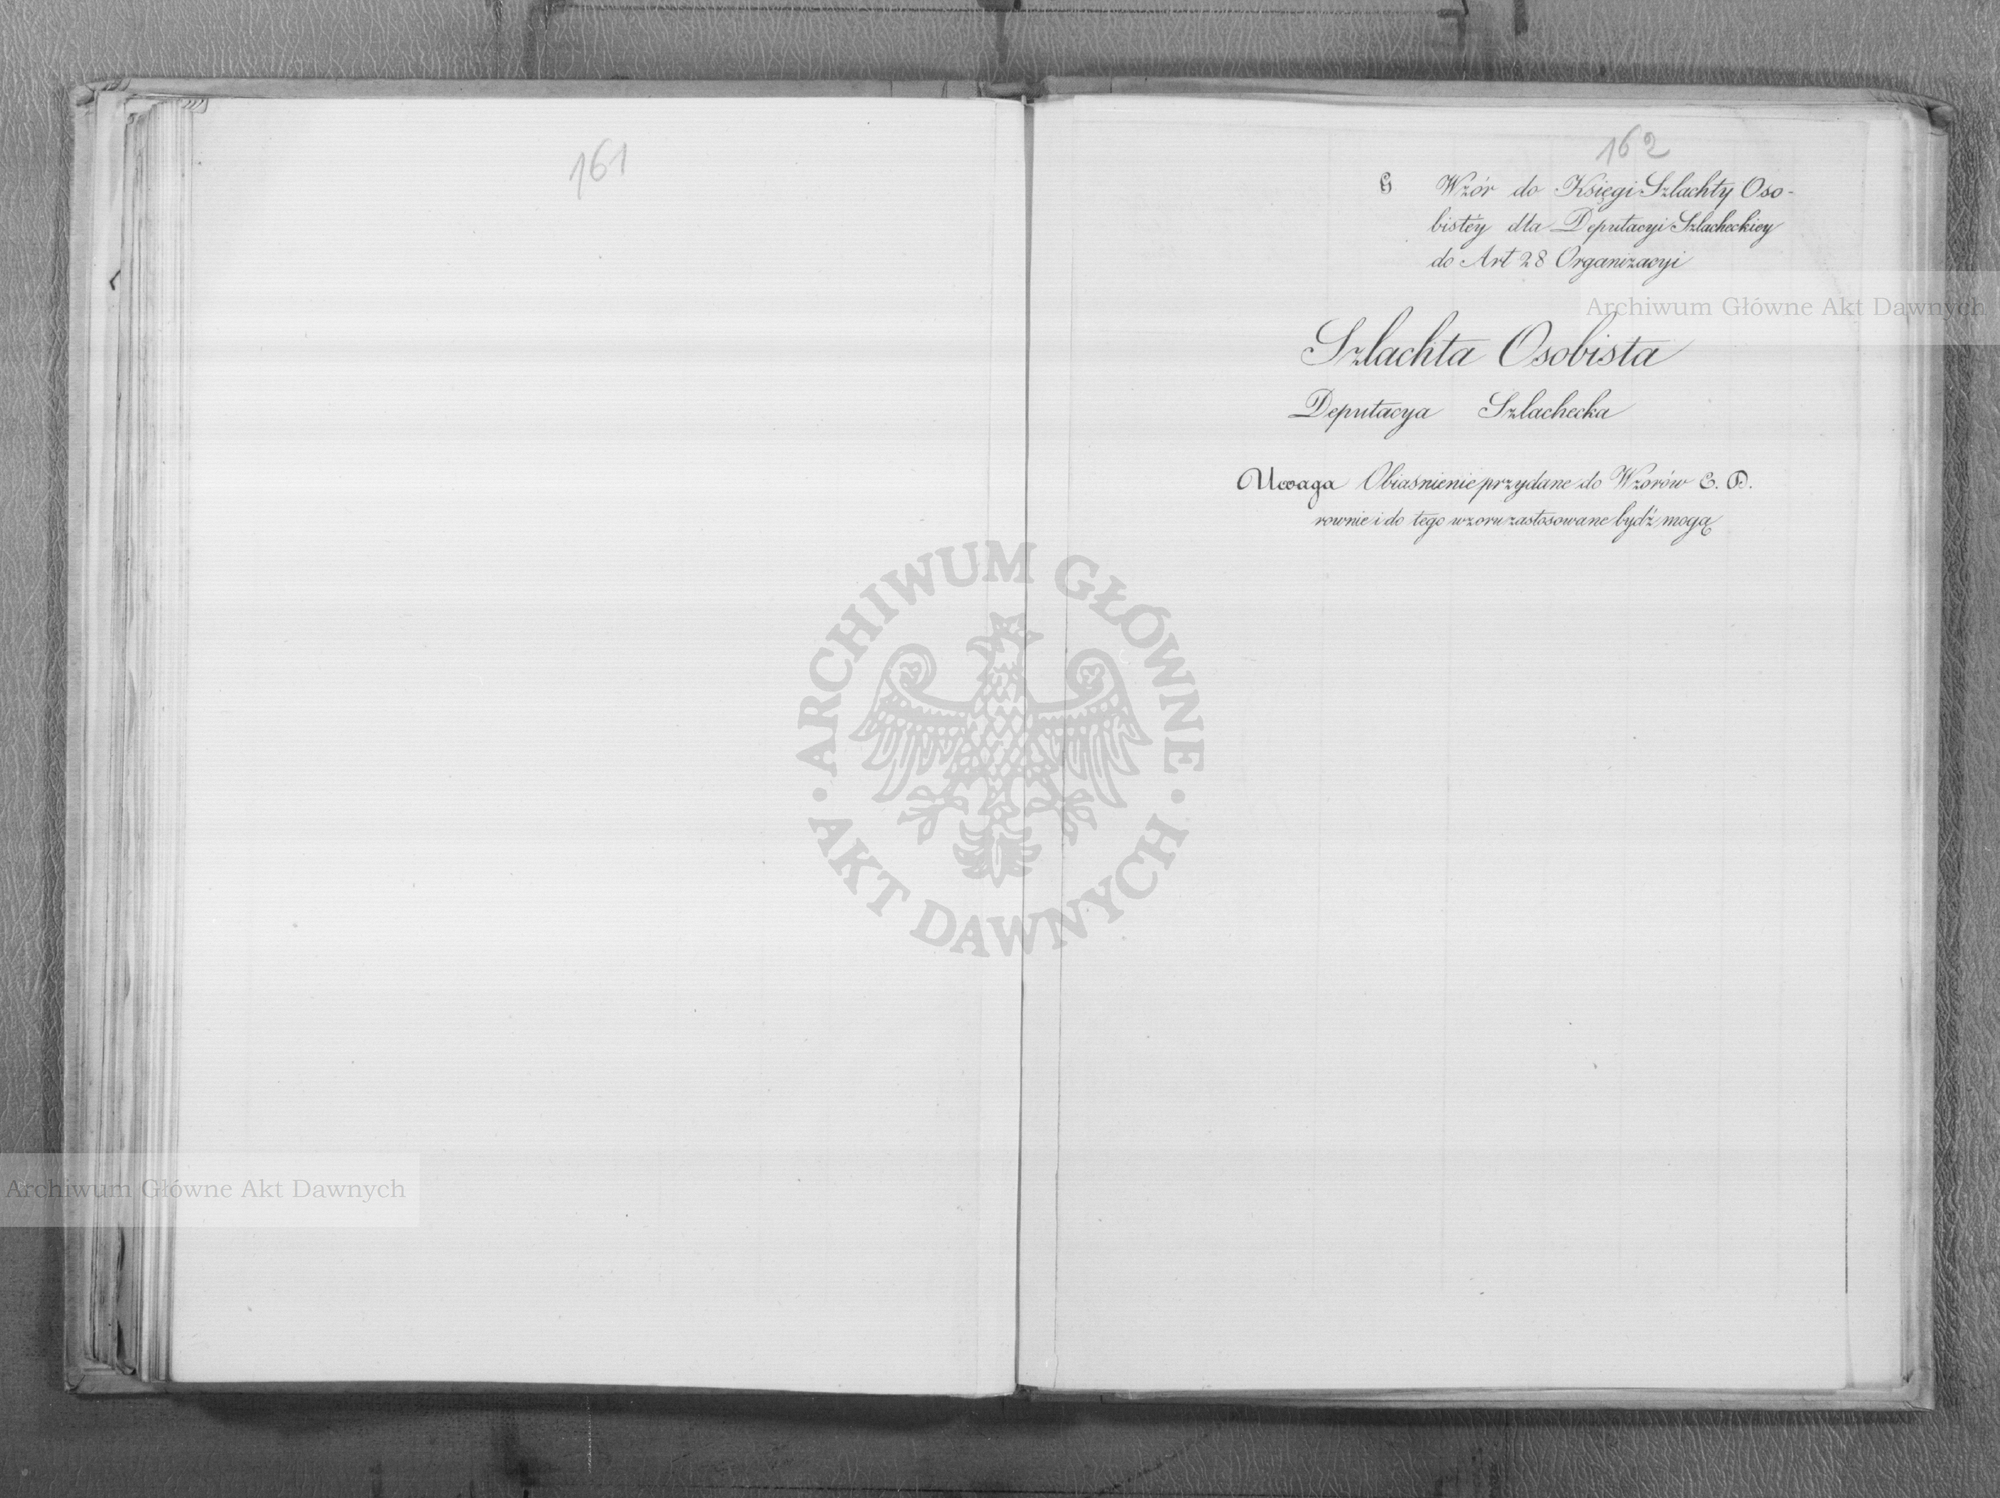 161
162
G Wzór do Księgi Szlachty Oso-
bistéy dla Deputacyi Szlacheckiey
do Art 28 Organizacyi
Szlachta Osobista
Deputacya Szlachecka
Uwaga Obiasnienie przydane do Wzorów E. D.
rownie i do tego wzoru zastosowane bydź mogą
Archiwum Główne Akt Dawnych
ARCHIWUM GŁÓWNE
AKT DAWNYCH
Archiwum Główne Akt Dawnych